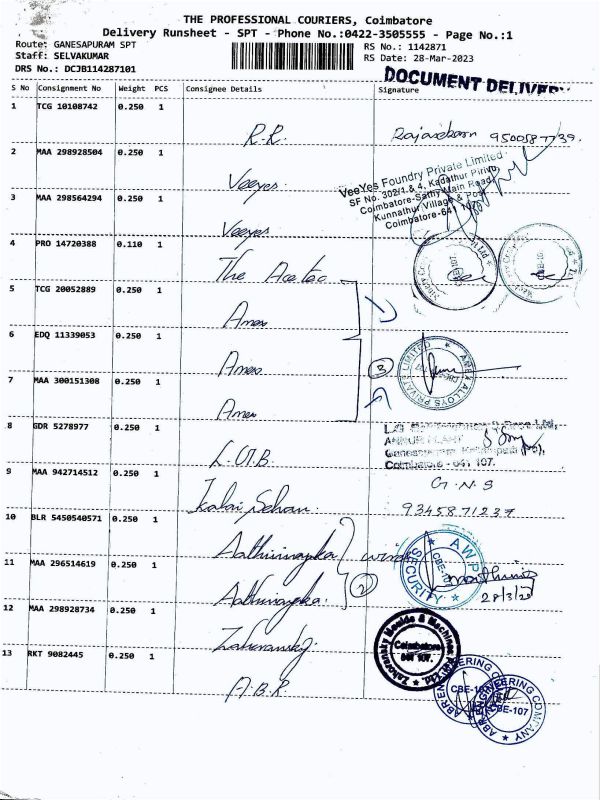 THE PROFESSIONAL COURIERS, Coimbatore
Delivery Runsheet - SPT - Phone No.:0422-3505555 - Page No.:1
Route: GANESAPURAM SPT
RS No.: 1142871
Staff: SELVAKUMAR
RS Date: 28-Mar-2023
DRS No.: DCJB114287101
DOCUMENT DELIVERY
S No Consignment No Weight PCS Consignee Details Signature
1 TCG 10108742 0.250 1
R.R. 9500587739.
2 MAA 298928504 0.250 1
Veeyes.
VeeYes Foundry Private Limited
SF No. 302/1 & 4, Kadathur Pirivu,
Coimbatore-Sathy Main Road,
Kunnathur Village & Post
Coimbatore-641 107.
3 MAA 298564294 0.250 1
Veeyes
4 PRO 14720388 0.110 1
The
CBE-107.
CBE-10
5 TCG 20052889 0.250 1
Amex
6 EDQ 11339053 0.250 1
Amex
3
AMEX ALLOYS PRIVATE LIMITED
7 MAA 300151308 0.250 1
Amex
8 GDR 5278977 0.250 1
L.G.B.
Coimbatore - 641 107.
9 MAA 942714512 0.250 1
G.N.S
9345871237
10 BLR 5450540571 0.250 1
Aathivinayaka
2
AWP
SECURITY
CBE-10
28/3/23
11 MAA 296514619 0.250 1
Aathivinayaka.
12 MAA 298928734 0.250 1
Zahoransky
Zahoransky Moulds & Machines
Coimbatore
641 107.
13 RKT 9082445 0.250 1
A.B.R
ABR ENGINEERING COMPANY
CBE-107